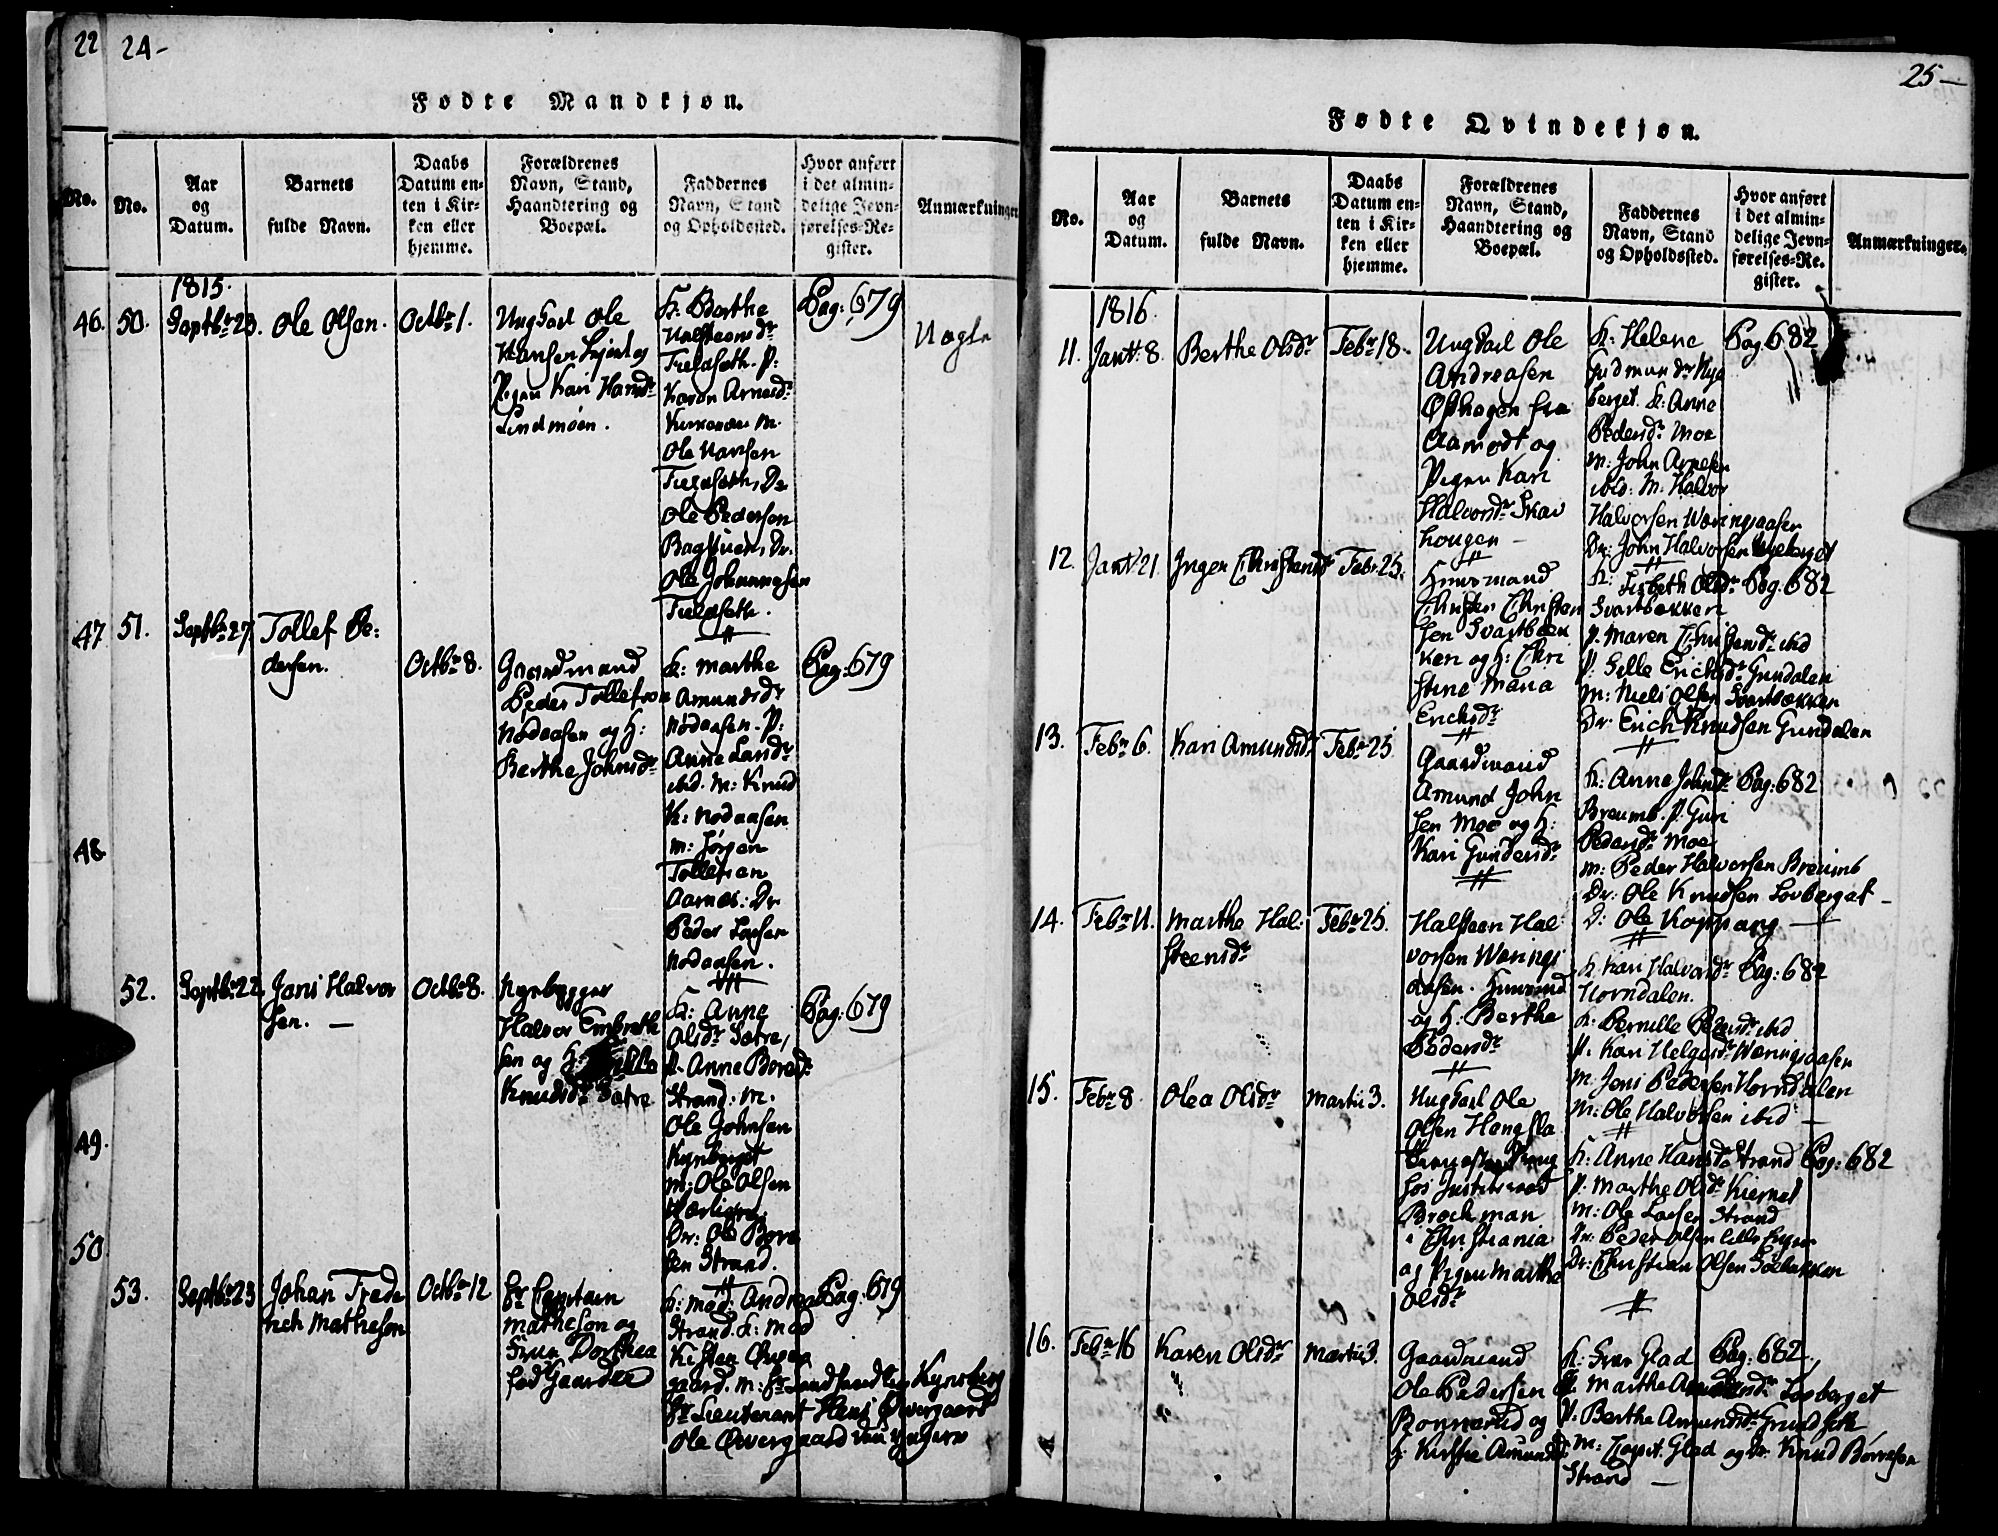 22
24-
Fødte Mandkjøn.
No.
No.
Aar og Datum.
Barnets fulde Navn.
Daabs Datum enten i Kirken eller hjemme.
Forældrenes Navn, Stand, Haandtering og Boepæl.
Faddernes Navn, Stand og Opholdssted.
Hvor anført i det almindelige Jevnførelses-Register.
Anmærkninger
1815.
46.
50.
Septbr 23.
Ole Olsen.
Octbr 1.
Ungkarl Ole
Hansen
Pigen Kari Hansdr
Lindmoen.
K: Berthe
Halsteensdr
P:
Karen Arnesdr
M.
Ole Hansen
Dr
Ole Pedersen
Bagstuen, Dr.
Ole Johannesen
Pag: 679
Uægte
47
51.
Septbr 27
Tollef Pe:
dersen.
Octbr 8.
Gaardmand
Peder Tollefsen
Nødaasen og H:
Berthe Johnsdr
K: Marthe
Amundsdr
Nødaasen. P:
Anne Larsdr
ibid. M: Knud
K: Nødaasen
M: Jørgen
Tollefsen
Aarnæs: Dr
Peder Larsen
Nødaasen.
Pag: 679
48
52.
Septbr 22.
Jens Halvor
sen. —
Octbr 8.
Nyebygger
Halvor Embreth
sen og H:
Knudsdr Sætre
K: Anne
Olsdr Sætre,
P. Anne Boresdr
Strand. M.
Ole Johnsen
Kynberget
M: Ole Olsen
Dr: Ole Bore
sen Strand.
Pag: 679
49.
50
53.
Septbr 23
Johan Frede
rich Matheson
Octbr 12
Hr Capitain
Matheson og
Frue Dorthea
fød Gaarder
K: Mad: Andrea
Strand. K: Mad
Kisten Øwer
gaard. M: Hr Landhandler Kynsberg
Hr Lieutenant Hans Øvergaard
Ole Øvergaard den yngere
Pag: 679
25—
Fødte Qvindekjøn.
No.
Aar og Datum.
Barnets fulde Navn.
Daabs Datum enten i Kirken eller hjemme.
Forældrenes Navn, Stand, Haandtering og Boepæl.
Faddernes Navn, Stand og Opholdssted.
Hvor anført i det almindelige Jevnførelses-Register.
Anmærkninger.
1816.
11.
Jan: 8.
Berthe Olsdr
Febr 18.
Ungkarl Ole
Andreasen
Østhagen fra
Aamodt og
Pigen Kari
Halvorsdr Skav
hougen —
K: Helene
Gudmundsdr Nye
berget. K: Anne
Pedersdr Moe
M: John Arnesen
ibid: M: Halvor
Halvorsen Wæringsaasen
Dr: John Halvorsen Nyeberget
Pag. 682
12.
Jan 21.
Inger Christensdr
Febr 25.
Huusmand
Christen Christen
sen Svartbæk
ken og H: Chri
stine Maria
Erichsdr
K: Lisbeth Olsdr
Svartbækken
P. Maren Christensdr ibid
P: Selle Erichsdr Grundalen
M: Niels Olsen Svartbækken
Dr. Erich Knudsen Grundalen
Pag. 682
13.
Febr 6.
Kari Amundsdr
Febr 25
Gaardmand
Amund John
sen Moe og H:
Kari Gundersdr
K: Anne Johnsdr
P. Guri
Pedersdr Moe
M: Peder Halvorsen
Dr: Ole Knudsen Lovberget —
D: Ole Koppang —
Pag: 682
14.
Febr 11.
Marthe Hal:
steensdr
Febr 25.
Halsteen Hal
vorsen Wærings
aasen. Huusmand
og H: Berthe
Pedersdr
K. Kari Halvorsdr
Horndalen.
K: Pernille Pedersdr ibid
P. Kari Helgesdr Wæringsaasen
M. Jens Pedersen Horndalen
M: Ole Halvorsen ibid —
Pag: 682
15.
Febr 8.
Olea Olsdr
Martii 3.
Ungkarl Ole
Olsen
hos Justitsraad
Brochman
i Christiania
og Pigen Marthe
Olsdr
K: Anne Hansdr Strand
P. Marthe Olsdr Kiernes
M: Ole Larsen Strand
Dr: Peder Olsen
Dr: Christian Olsen
Pag: 682
16.
Febr 16
Karen Olsdr
Martii 3.
Gaardmand
Ole Pedersen
og
H: Kirstie Amundsdr
K: Frue Glad
P. Marthe Amundsdr Lovberget
P. Berthe Amundsdr Grundseth
M: Capit. Glad og Dr. Knud Børresen
Strand —
Pag: 682